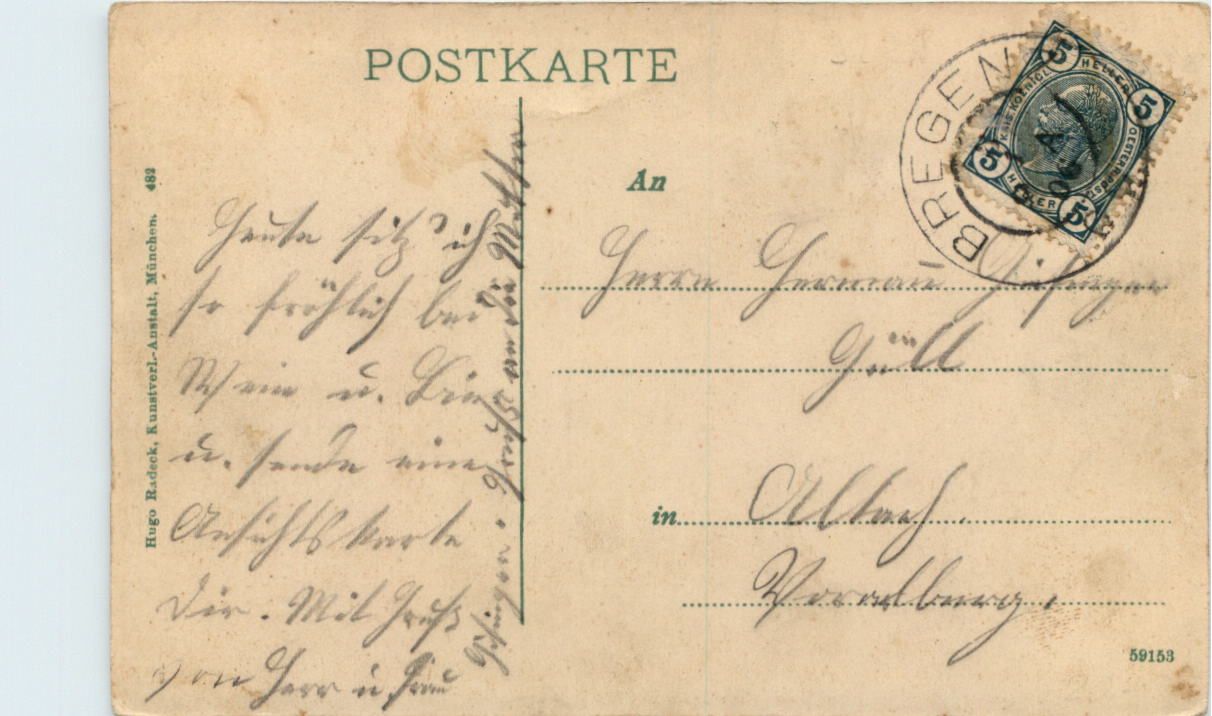 POSTKARTE
BREGEN
5 HELLER 5
KAIS. KOENIGL.
OESTERR. POST
5 HELLER 5
An
Herrn Herman
in
Altach
Vorarlberg.
Heute sitz' ich
so fröhlich bei
Wein u. Bier
u. sende eine
Ansichtskarte
Dir. Mit Gruß
von Herr u Frau
Gruß an die Mutter
Hugo Radeck, Kunstverl.-Anstalt, München. 482
59153